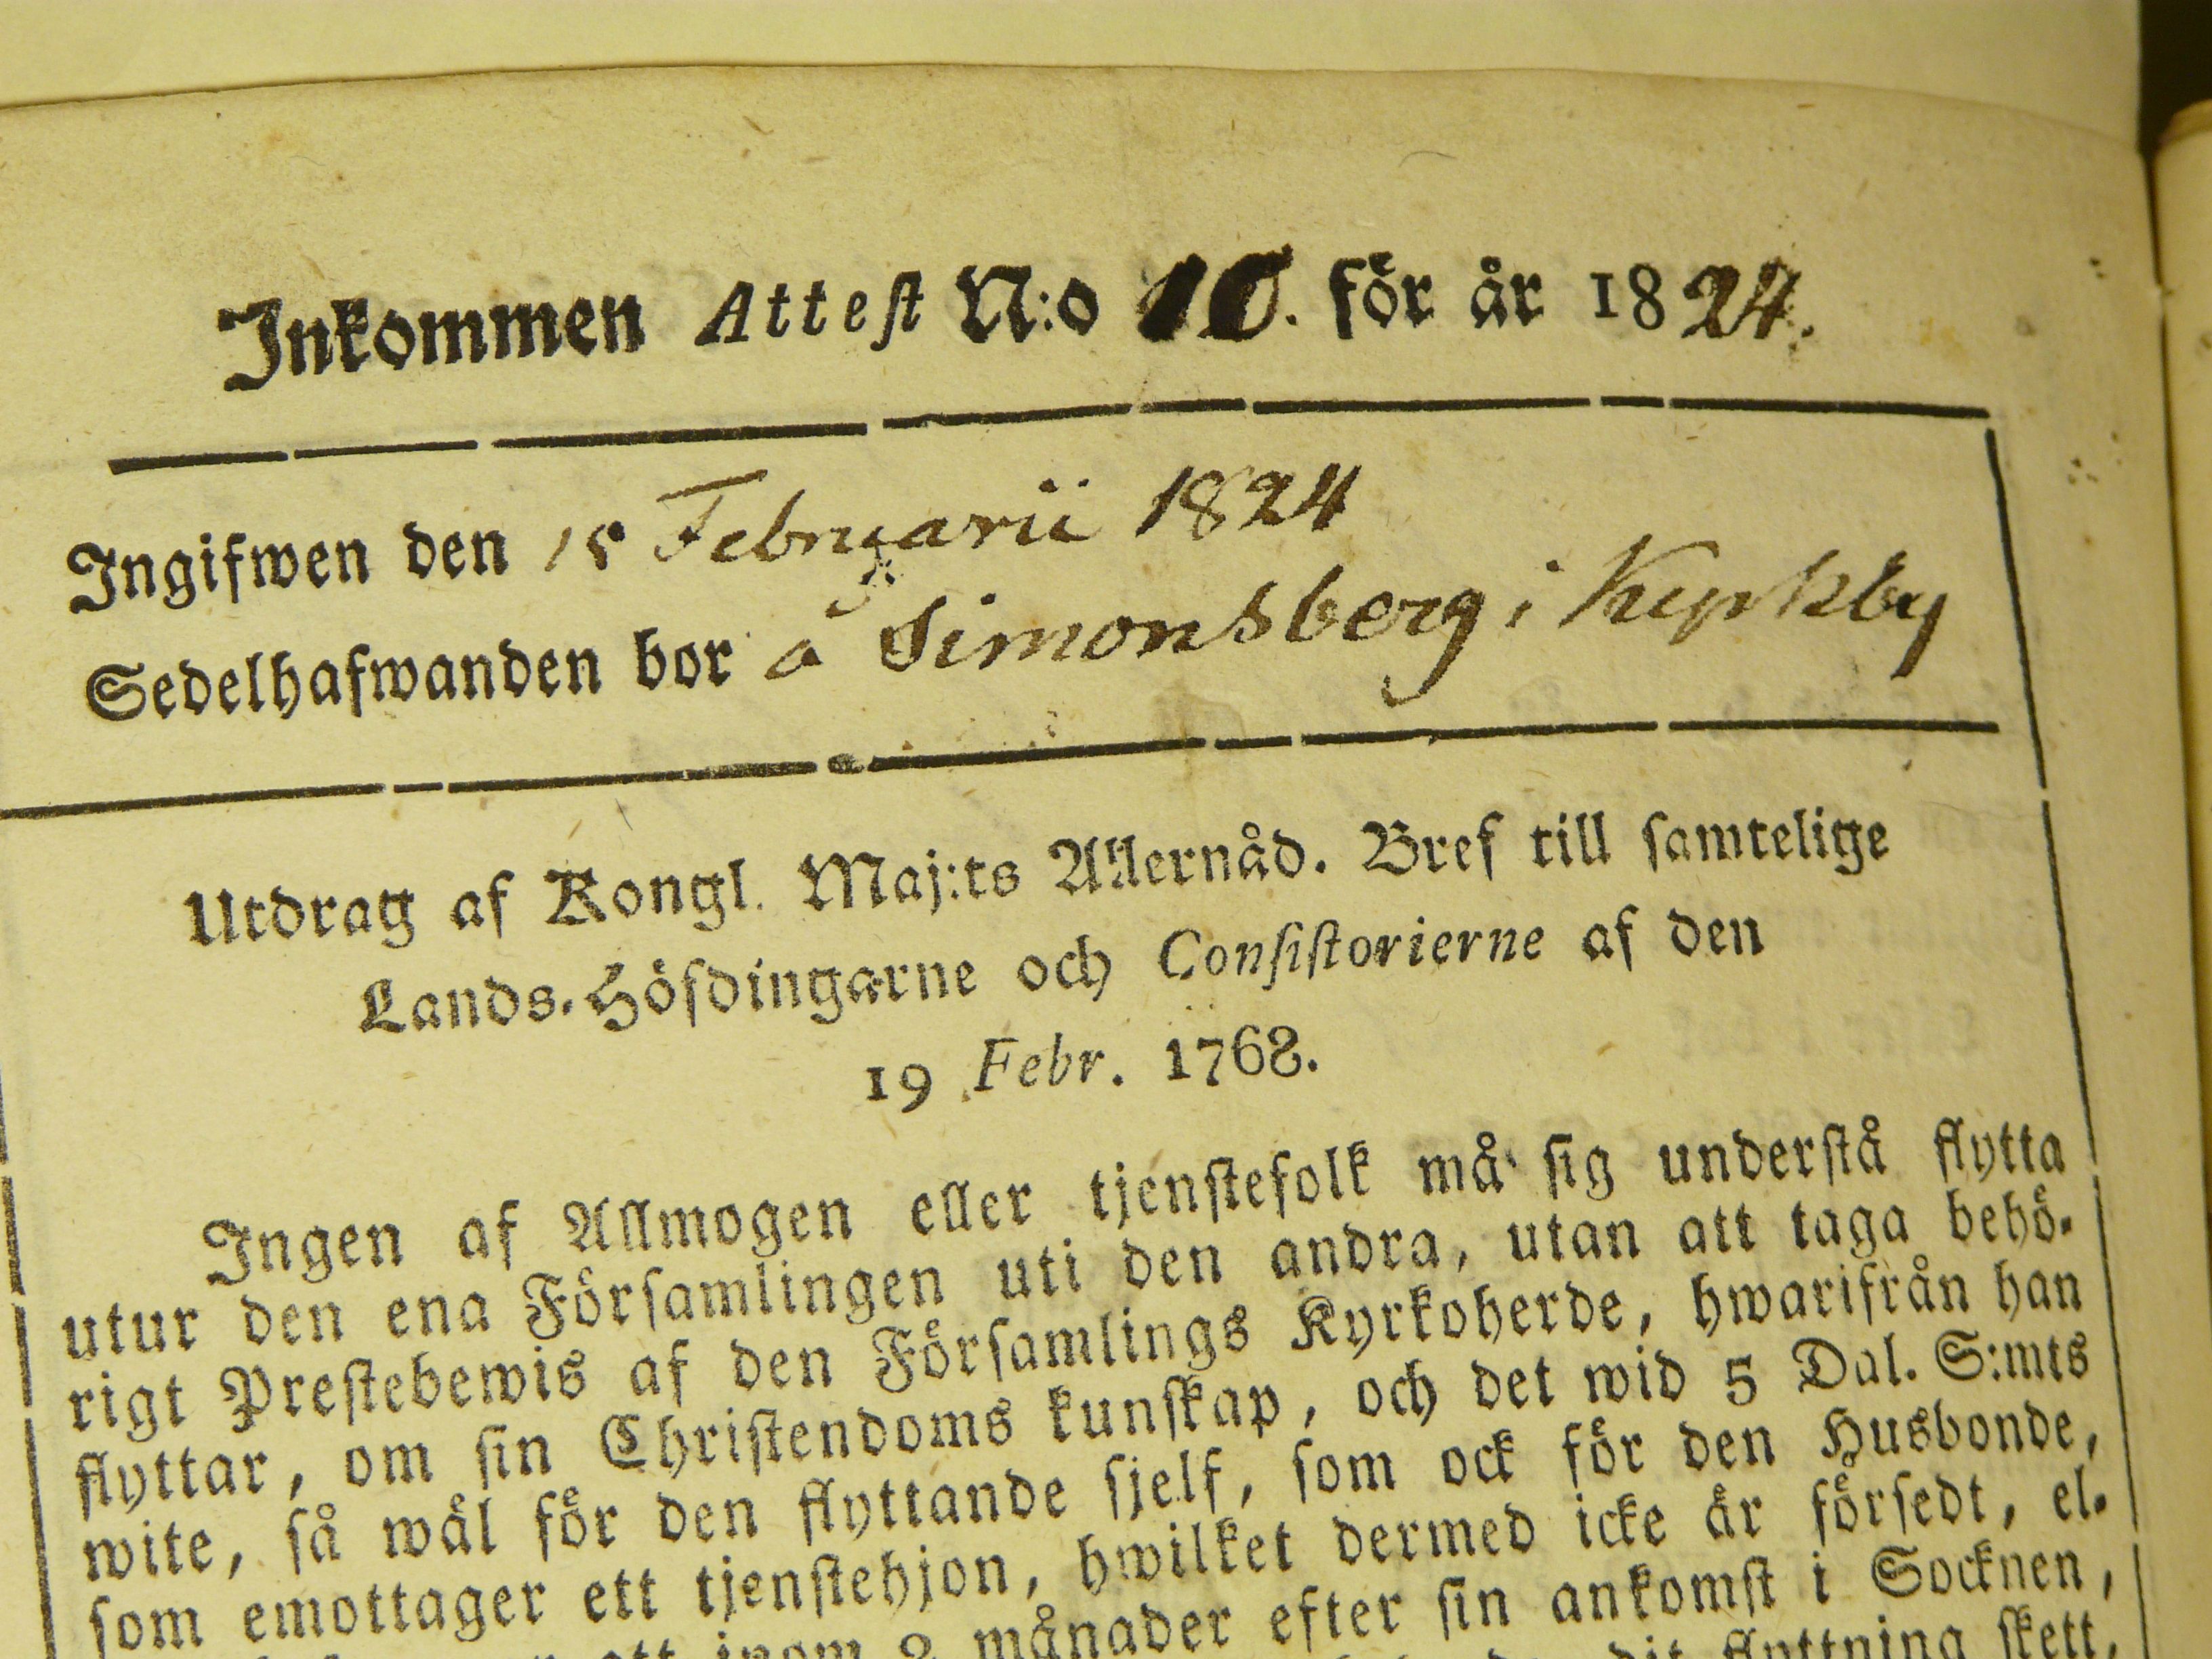 Inkommen Attest N:o 10. för år 1824.
Ingifwen den 15 Februarii 1824
Sedelhafwanden bor å Simonsberg i Kyrkby
Utdrag af Kongl. Maj:ts Allernåd. Bref till samtelige
Lands-Höfdingarne och Consistorierne af den
19 Febr. 1768.
Ingen af Allmogen eller tjenstefolk må sig understå flytta
utur den ena Församlingen uti den andra, utan att taga behö-
rigt Prestebewis af den Församlings Kyrkoherde, hwarifrån han
flyttar, om sin Christendoms kunskap, och det wid 5 Dal. S:mts
wite, så wäl för den flyttande sjelf, som ock för den Husbonde,
som emottager ett tjenstehjon, hwilket dermed icke är försedt, el-
att inom 2 månader efter sin ankomst i Socknen,
dit flyttning skett,